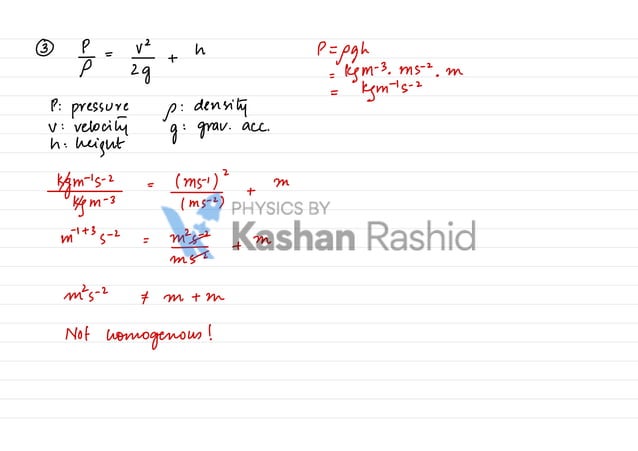 ③ P/ρ = v²/2g + h
P = ρgh
= kgm⁻³ . ms⁻² . m
= kgm⁻¹s⁻²
P: pressure ρ: density
v: velocity g: grav. acc.
h: height
kgm⁻¹s⁻²/kgm⁻³ = (ms⁻¹)²/(ms⁻²) + m
PHYSICS BY
Kashan Rashid
m⁻¹⁺³ s⁻² = m²s⁻²/ms⁻² + m
m²s⁻² ≠ m + m
Not homogenous!